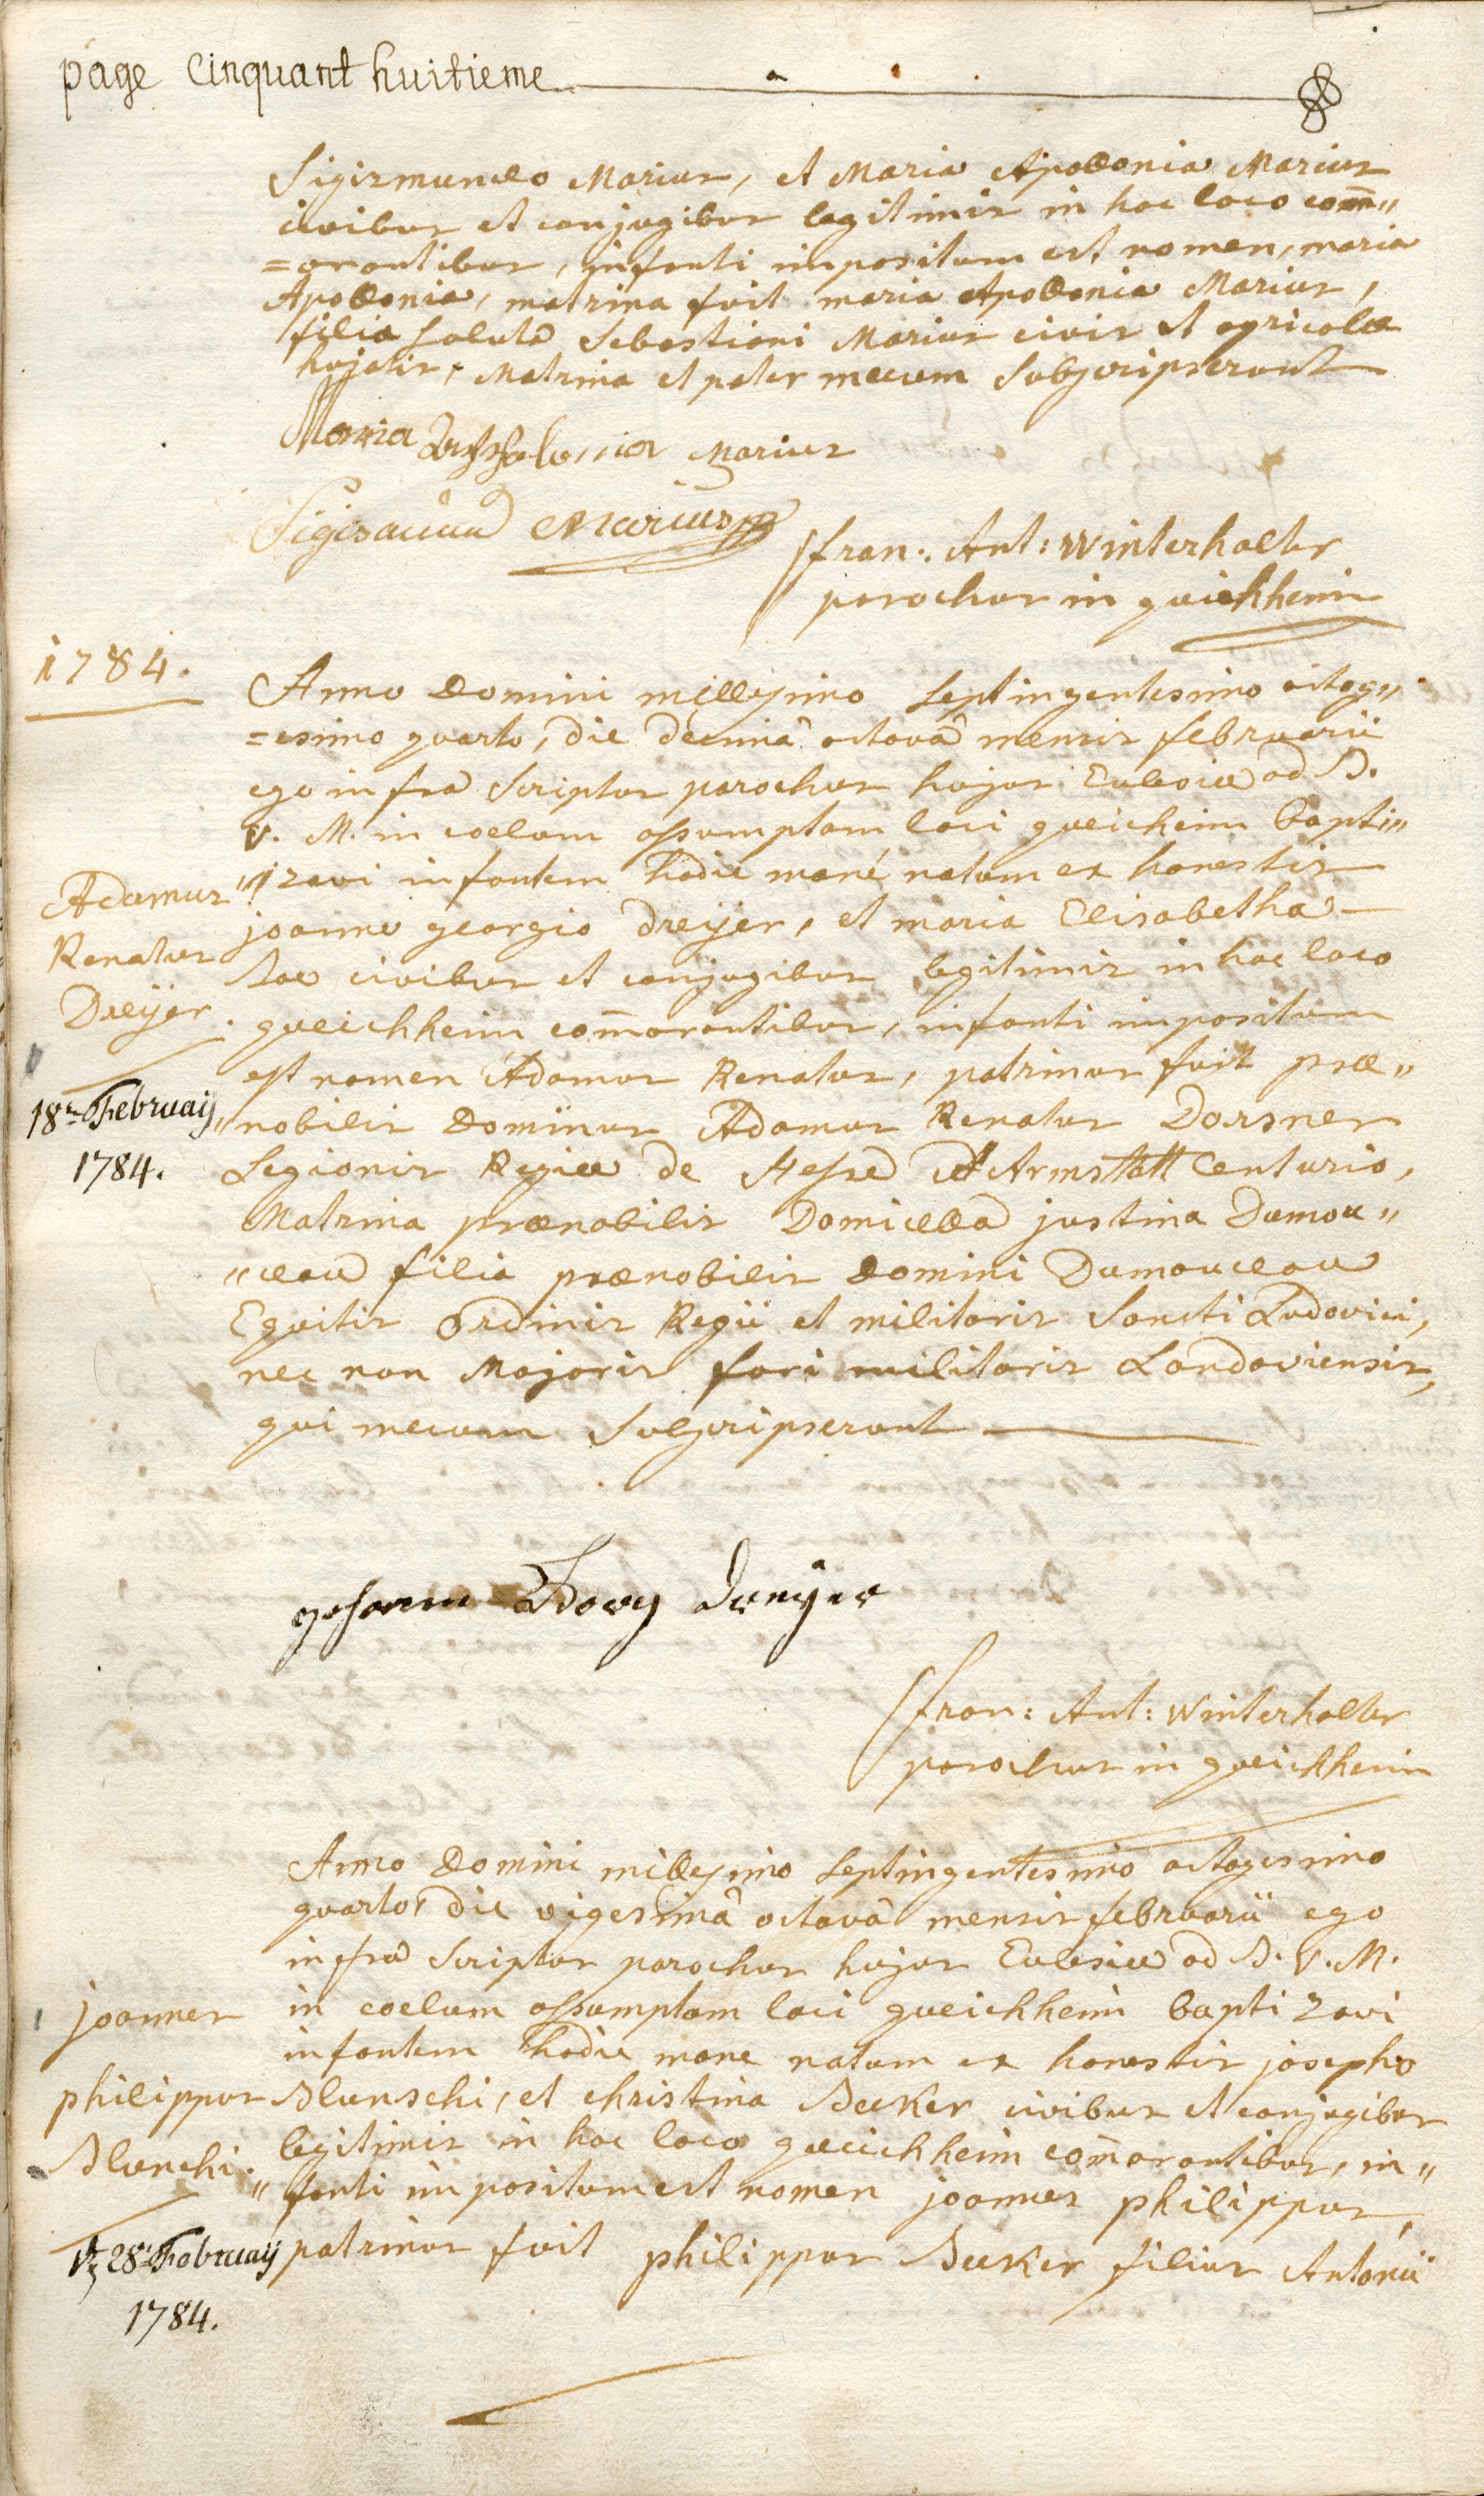 page Cinquant huitieme
Sigismundo Marius, et Maria Apollonia Marius
civibus et conjugibus legitimis in hoc loco com̄„
=orantibus, infanti impositum est nomen, maria
Apollonia, matrina fuit maria Apollonia Marius,
filia soluta Sebastiani Marius civis et agricolæ
hujatis, Matrina et pater mecum subscripserunt
Maria Marius
Sigismund Marius
fran: Ant: Winterhalter
parochus in queichheim
1784.
Anno Domini millesimo septingentesimo octog„
=esimo quarto, die decimâ octavâ mensis februarii
ego infra scriptus parochus hujus Ecclesiæ ad B.
V. M. in coelum assumptam loci queicheim bapti„
„zavi infantem hodie mané natum ex honestis
Adamus
Renatus
Dreÿer.
joanne georgio Dreÿer, et maria Elisabetha
civibus et conjugibus legitimis in hoc loco
queichheim com̄orantibus, infanti impositum
est nomen Adamus Renatus, patrinus fuit præ„
18a Februaij
1784.
„nobilis Dominus Adamus Renatus Dorsner
Legionis Regiæ de Hesse d'Armstatt Centurio,
Matrina prænobilis Domicella justina Dumou„
„ceau filia prænobilis Domini Dumouceau
Equitis Ordinis Regii et militaris Sancti Ludovici,
nec non Majoris fori militaris Landaviensis,
qui mecum subscripserunt
fran: Ant: Winterhalter
parochus in queichheim
Anno Domini millesimo septingentesimo octogesimo
quarto, die vigesimâ octavâ mensis februarii ego
infra scriptus parochus hujus Ecclesiæ ad B. V. M.
in coelum assumptam loci queichheim baptizavi
infantem hodie mane natum ex honestis josepho
joannes
philippus
Blunschi.
Blunschi, et christina Becker civibus et conjugibus
legitimis in hoc loco queichheim com̄orantibus, in„
„fanti impositum est nomen joannes philippus,
patrinus fuit philippus Becker filius Antonii
28a Februaij
1784.